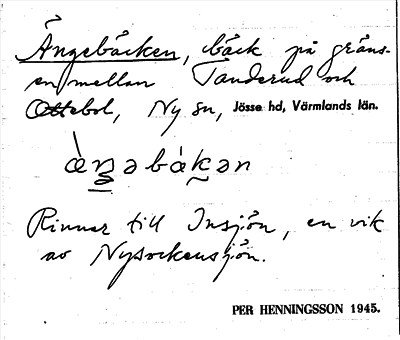 Ängebäcken, bäck på gräns-
en mellan Tanderud och
Ottebol, Ny sn, Jösse hd, Värmlands län.
Rinner till Insjön, en vik
av Nysockensjön.
PER HENNINGSSON 1945.